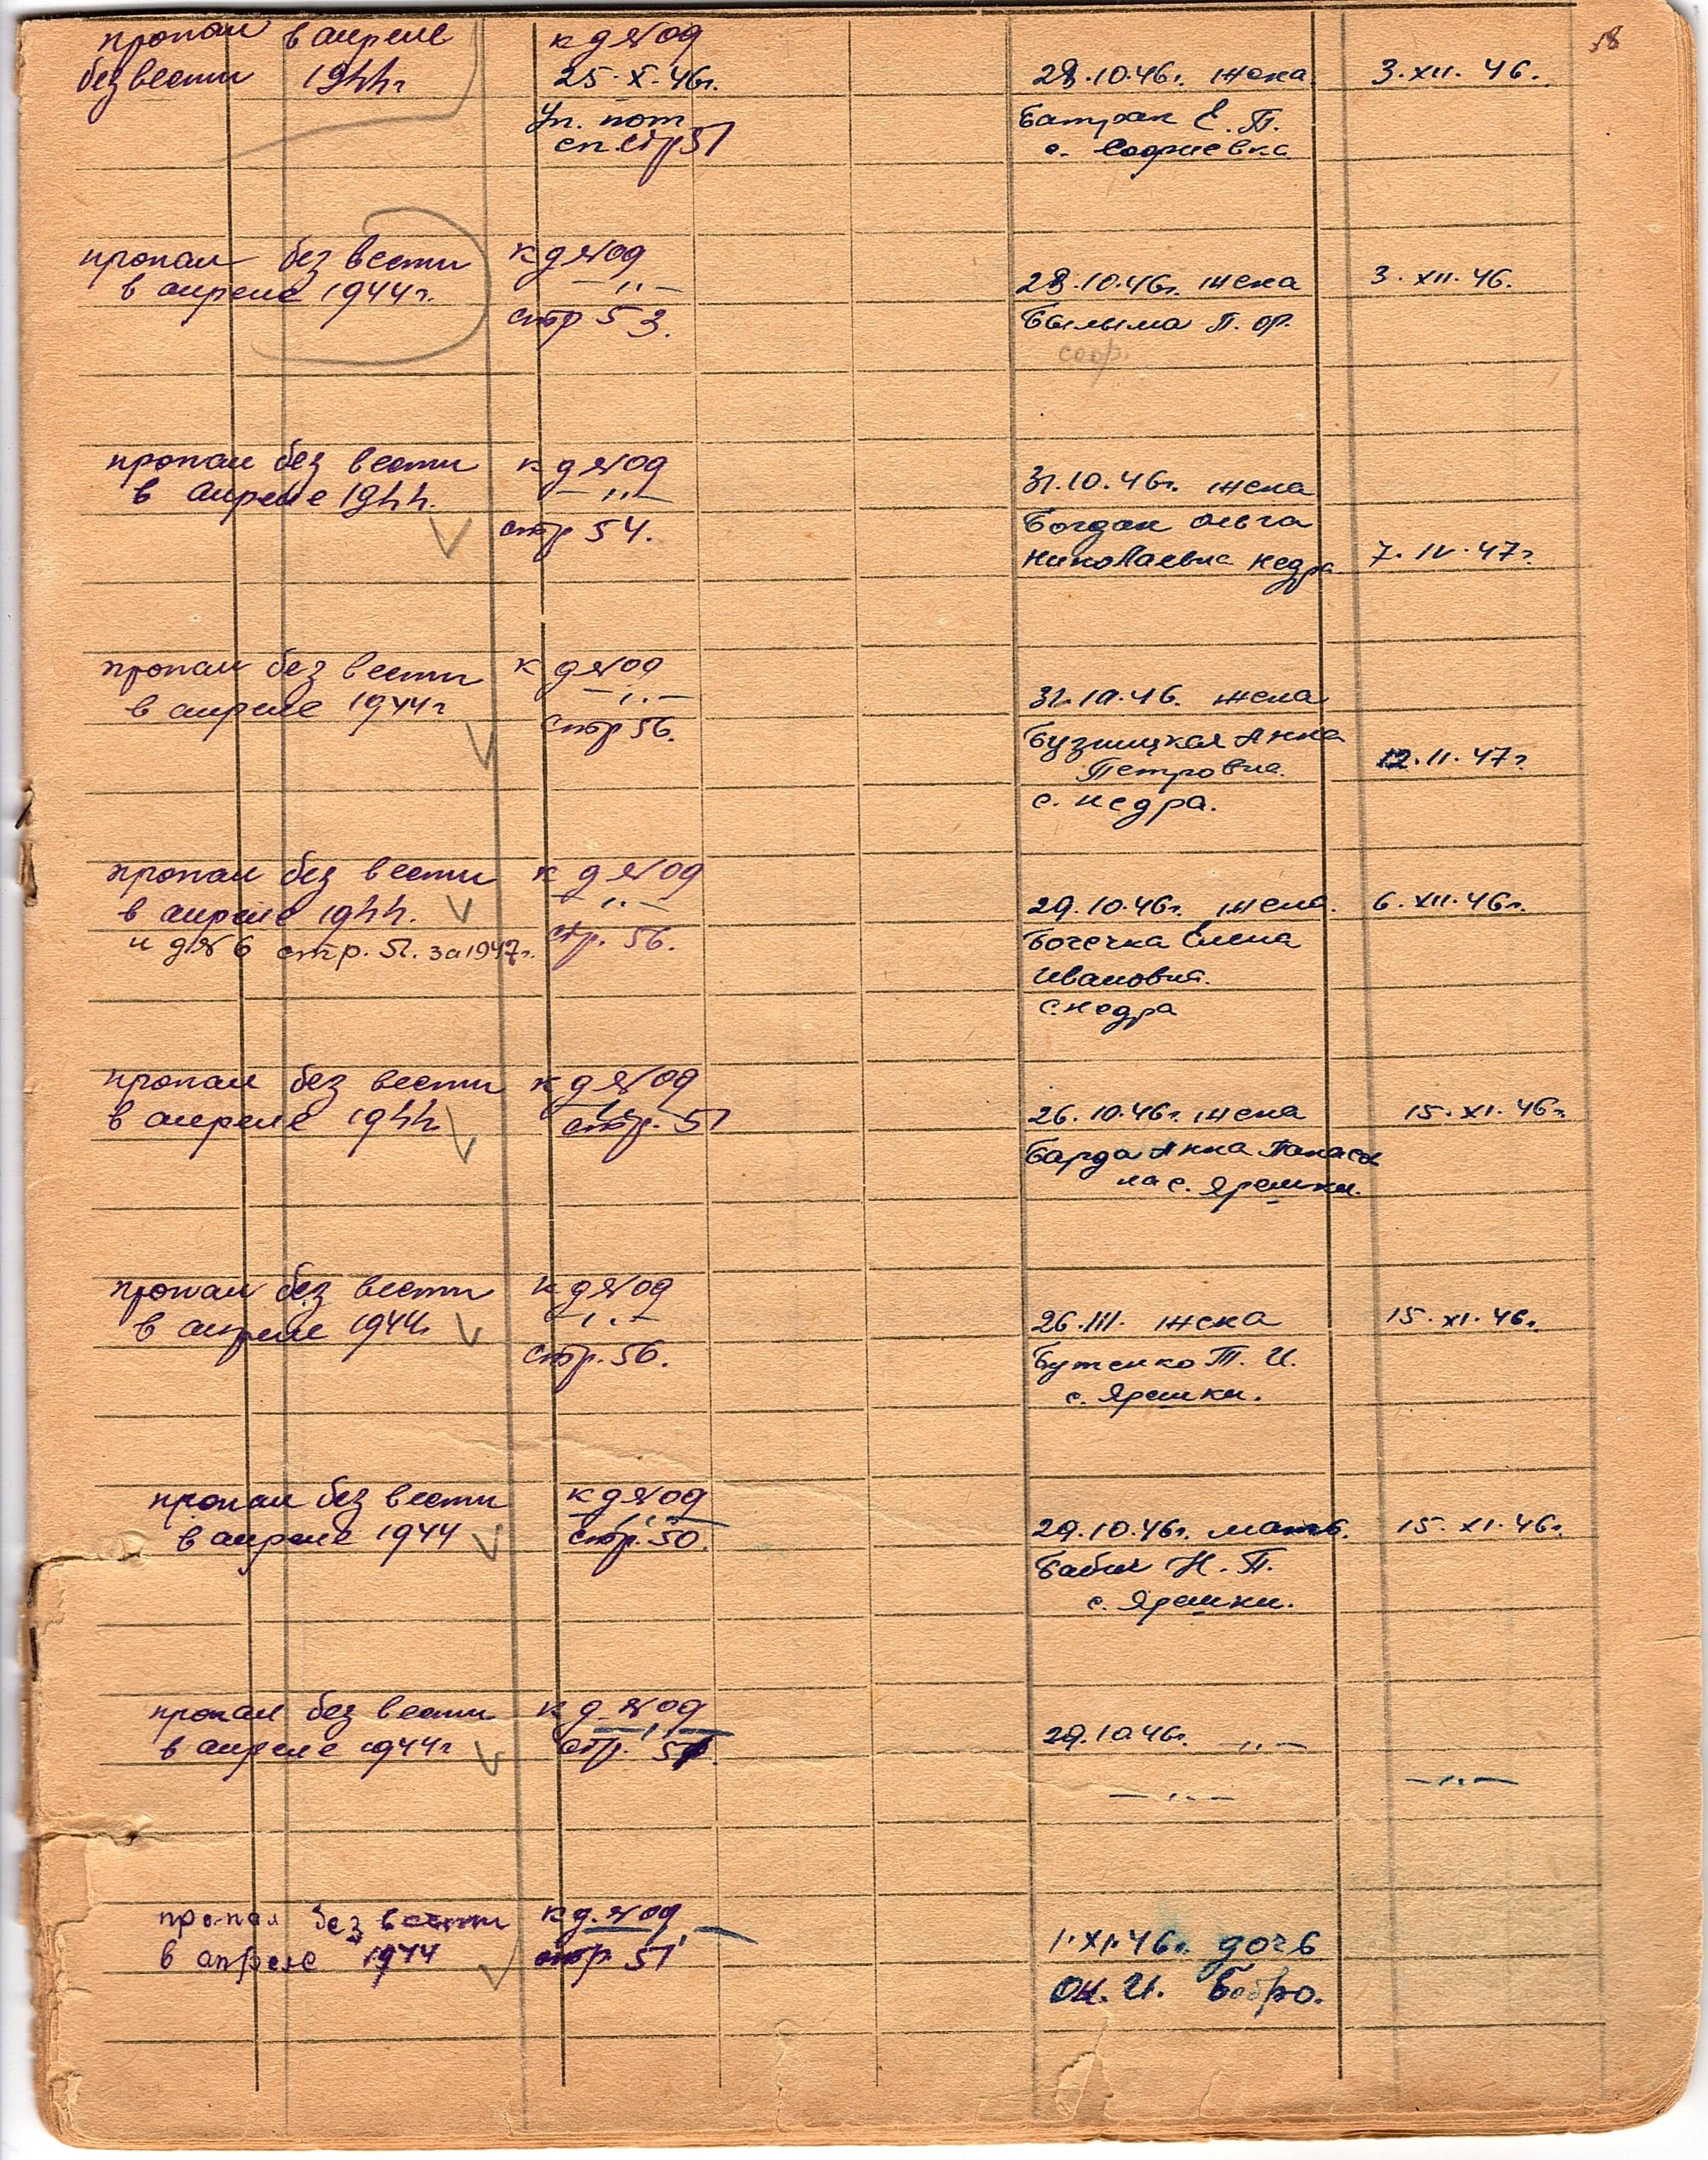 58
пропал в апреле к д №09
без вести 1944г 25.X.46г. 28.10.46г. жена 3.XII.46.
Уп. пот Батрак Е.П.
сп. стр 51 с. Софиевка
пропал без вести к д №09
в апреле 1944г. —〃— 28.10.46г. жена 3.XII.46.
стр 53. Былыма П. ор.
соф.
пропал без вести к д №09
в апреле 1944. —〃— 31.10.46г. жена
стр 54. Богдан Ольга
Николаевна Недра 7.IV.47г.
пропал без вести к д №09
в апреле 1944г —〃— 31.10.46. жена
стр 56. Бузницкая Анна
Петровна 12.II.47г.
с. Недра.
пропал без вести к д №09
в апреле 1944. —〃— 29.10.46г. жена. 6.XII.46г.
и д №6 стр. 51. за 1947г. стр. 56. Бочечка Елена
Ивановна.
с. Недра
пропал без вести к д №09
в апреле 1944 стр. 51 26.10.46г. жена 15.XI.46г.
Барда Анна Панась
на с. Ярешки.
пропал без вести к д №09
в апреле 1944г —〃— 26.III. жена 15.XI.46г.
стр. 56. Бутенко Т. И.
с. Ярешки.
пропал без вести к д №09
в апреле 1944 стр. 50. 29.10.46г. мать. 15.XI.46г.
Бабич Н. П.
с. Ярешки.
пропал без вести к д. №09
в апреле 1944г стр. 29.10.46г. —〃—
—〃— —〃—
пропал без вести к д. №09 —〃—
в апреле 1944 стр 51 1.XI.46г. дочь
Ок. И. Бобро.